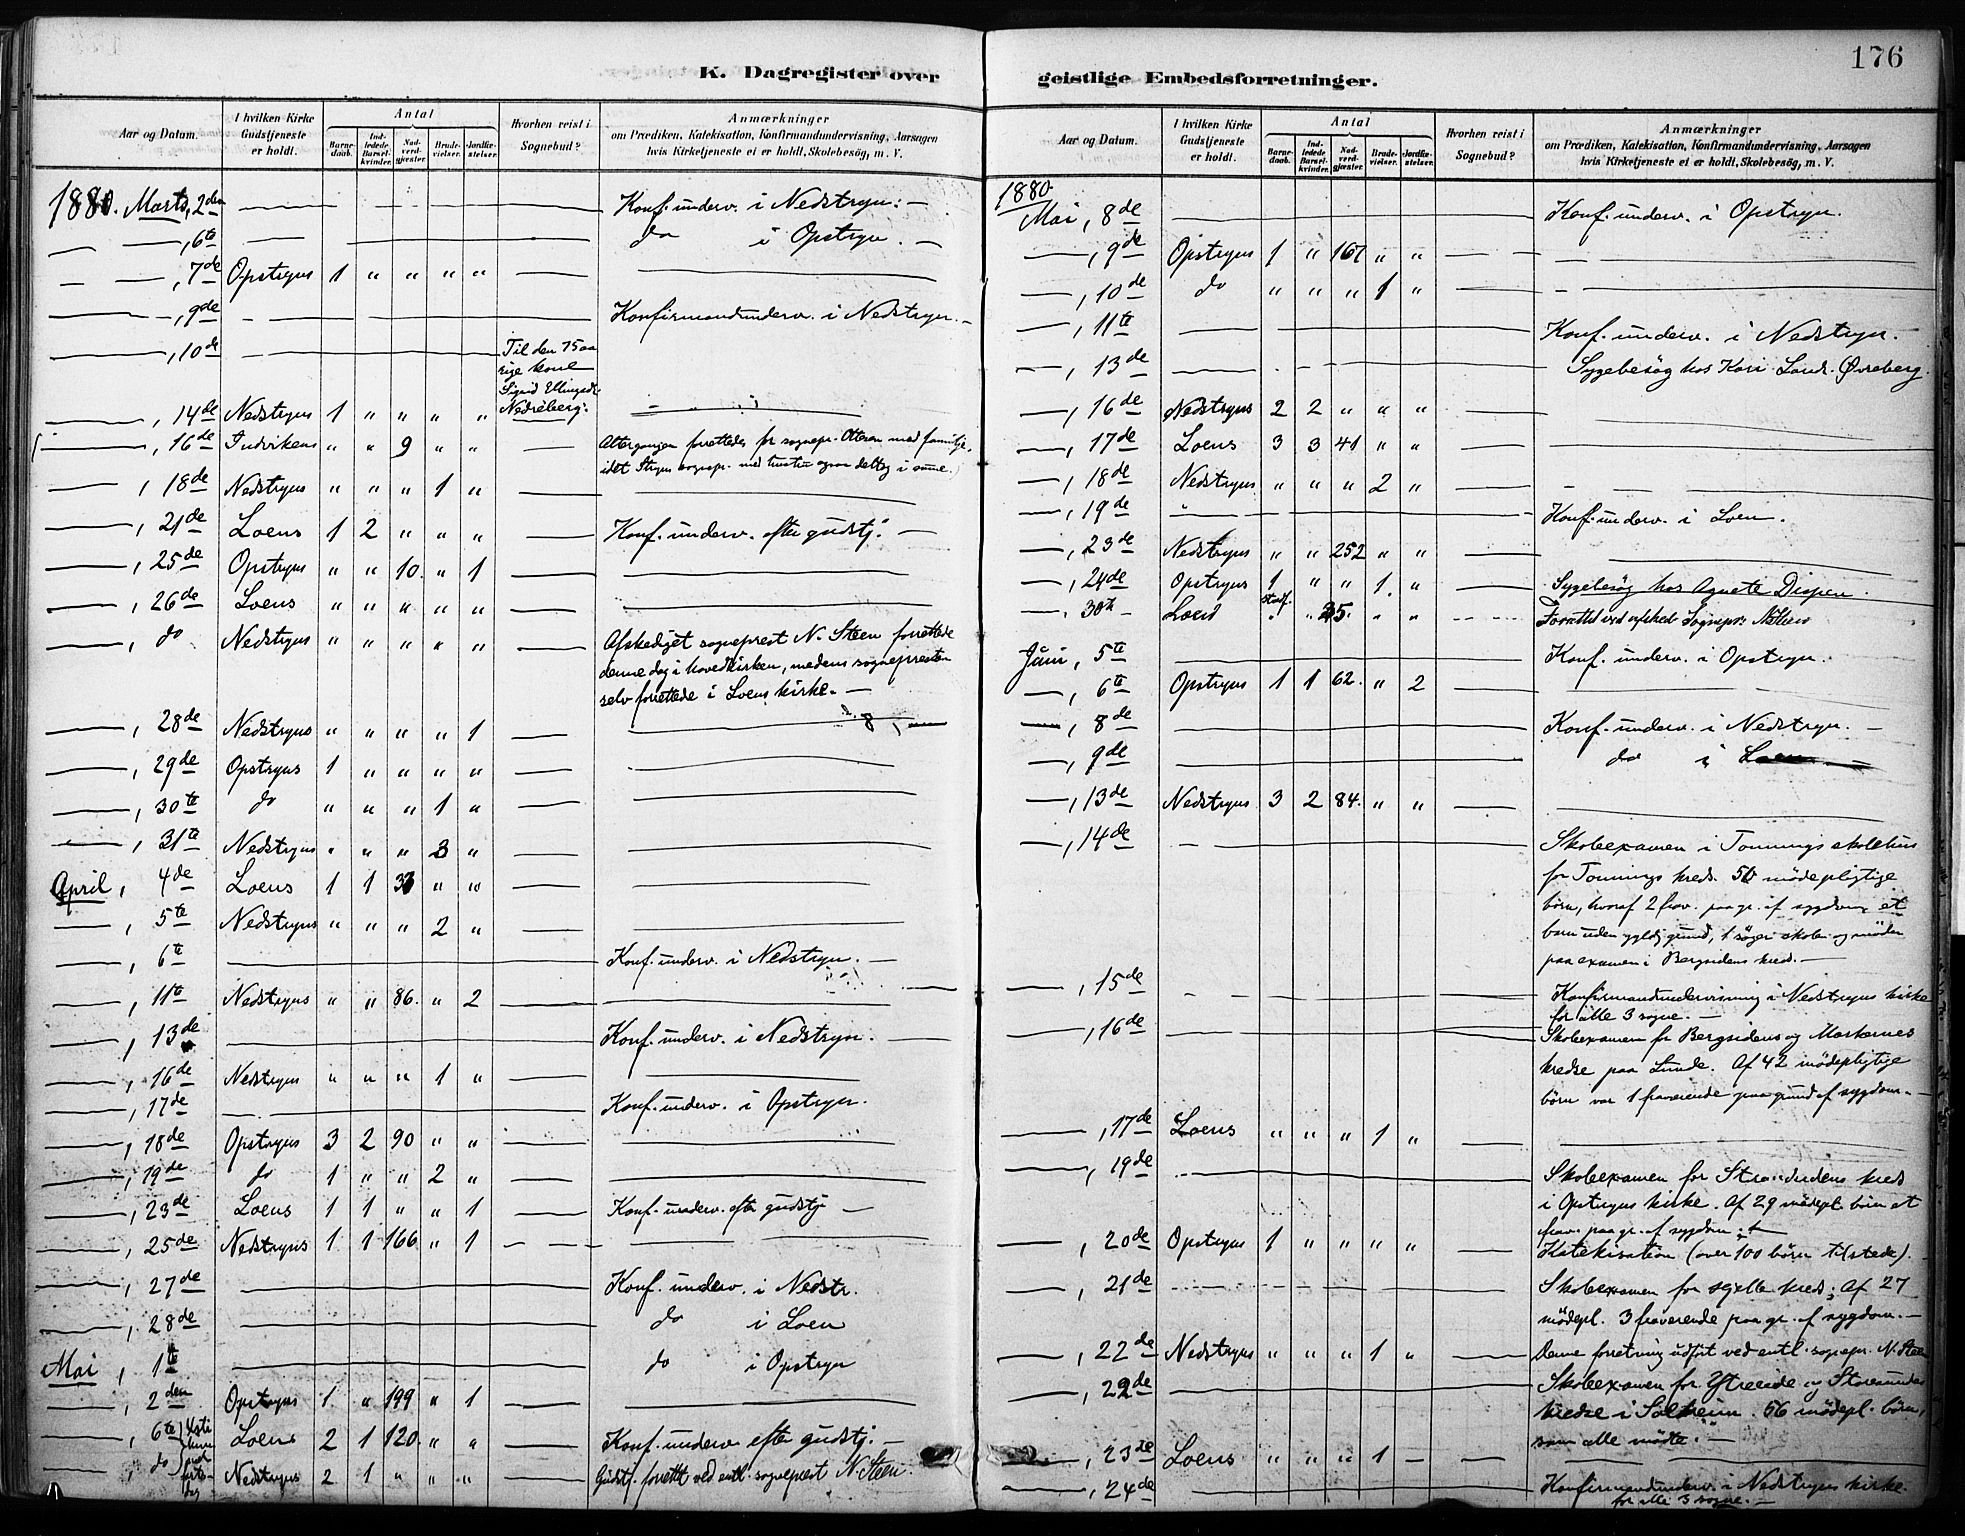 176
K. Dagregister over
Aar og Datum. I hvilken Kirke Gudstjeneste er holdt. Antal Hvorhen reist i Sognebud? Anmærkninger
Barnedaab. Indledede Barselkvinder. Nadverdgjester. Brudevielser. Jordfæstelser. om Prædiken, Katekisation, Konfirmandundervisning, Aarsagen hvis Kirketjeneste ei er holdt, Skolebesög, m. V.
1880. Marts, 2den Konf. underv. i Nedstryn.
, 6te do i Opstryn.
, 7de Opstryns 1 " " " "
, 9de Konfirmandunderv. i Nedstryn.
, 10de Til den 75aa
rige kone
Sigrid Ellingsdr
Nedreberg.
, 14de Nedstryns 1 " " " "
, 16de Indvikens " " 9 " " Altergangen forrettedes for sognepr. med familje,
idet Stryns sognepr. med deltog i samme.
, 18de Nedstryns " " " 1 "
, 21de Loens 1 2 " " " Konf. underv. efter gudstj.
, 25de Opstryns " " 10. " 1
, 26de Loens " " " " "
, do Nedstryns " " " " " Afskediget sogneprest N. Steen forrettede
denne dag i hovedkirken, medens sognepresten
selv forrettede i Loens kirke.
, 28de Nedstryns " " " " 1
, 29de Opstryns 1 " " " "
, 30te do " " " 1 "
, 31te Nedstryns " " " 3 "
April, 4de Loens 1 1 " "
, 5te Nedstryns " " " 2 "
, 6te Konf. underv. i Nedstryn.
, 11te Nedstryns " " 86. " 2
, 13de Konf. underv. i Nedstryn.
, 16de Nedstryns " " " 1 "
, 17de Konf. underv. i Opstryn.
, 18de Opstryns 3 2 90 " "
, 19de do 1 " " 2 "
, 23de Loens 1 1 " " 1 Konf. underv. efter gudstj.
, 25de Nedstryns 1 1 166 " 1
, 27de Konf. underv. i Nedstr.
, 28de do i Loen
Mai, 1te do i Opstryn
, 2den Opstryns 1 " 199 " 1
, 6te Loens 2 1 120. " " Konf. underv. efter gudstj.
, do Nedstryns 2 1 " " " Gudstj. forrett ved entl. sogneprest N. Steen.
geistlige Embedsforretninger.
Aar og Datum. I hvilken Kirke Gudstjeneste er holdt. Antal Hvorhen reist i Sognebud? Anmærkninger
Barnedaab. Indledede Barselkvinder. Nadverdgjester. Brudevielser. Jordfæstelser. om Prædiken, Katekisation, Konfirmandundervisning, Aarsagen hvis Kirketjeneste ei er holdt, Skolebesög, m. V.
1880
Mai, 8de Konf. underv. i Opstryn.
, 9de Opstryns 1 " 167 " "
, 10de do " " " 1 "
, 11te Konf. underv. i Nedstryn.
, 13de Sygebesøg hos Kari Øvreberg.
, 16de Nedstryns 2 2 " " "
, 17de Loens 3 3 41 " "
, 18de Nedstryns " " " 2 "
, 19de Konf. underv. i Loen.
, 23de Nedstryns " " 252 " "
, 24de Opstryns 1 " " 1. " Sygebesøg hos Agnete Dispen.
, 30te Loen " " 35. " " Forrettet ved afsked. Sognepr. N. Steen
Juni, 5te Konf. underv. i Opstryn.
, 6te Opstryns 1 1 62. " 2
, 8de Konf. underv. i Nedstryn.
, 9de do i Loen
, 13de Nedstryns 3 2 84. " "
, 14de Skoleexamen i Tonnings skolehus
for Tonnings kreds. 50 mødepligtige
børn, hvoraf 2 frav. paa gr. af sygdom, et
barn uden gyldig grund, 1 søger skole og møder
paa examen i Bergsidens kreds.
, 15de Konfirmandundervisning i Nedstryns kirke
for alle 3 sogne.
, 16de Skoleexamen for Bergsidens og Markernes
kredse paa Lunde. Af 42 mødepligtige
børn var 1 fraværende paa grund af sygdom.
, 17de Loens " " " 1 "
, 19de Skoleexamen for Strandsidens kreds
i Opstryns kirke. Af 29 mødepl. børn et
frav. paa gr. af sygdom.
, 20de Opstryns 1 " " " " Katekisation (over 100 børn tilstede).
, 21de Skoleexamen for Hjelle kreds; Af 27
mødepl. 3 fraværende paa gr. af sygdom.
, 22de Nedstryns " " " 1 " Denne forretning udført ved entl. sognepr. N. Steen
, 22de Skoleexamen for Ytreeide og
kredse i Solheim. 56 mødepl. børn,
som alle mødte.
, 23de Loens " " " 1 -
, 24de Konfirmandunderv. i Nedstryns kirke
for alle 3 sogne.